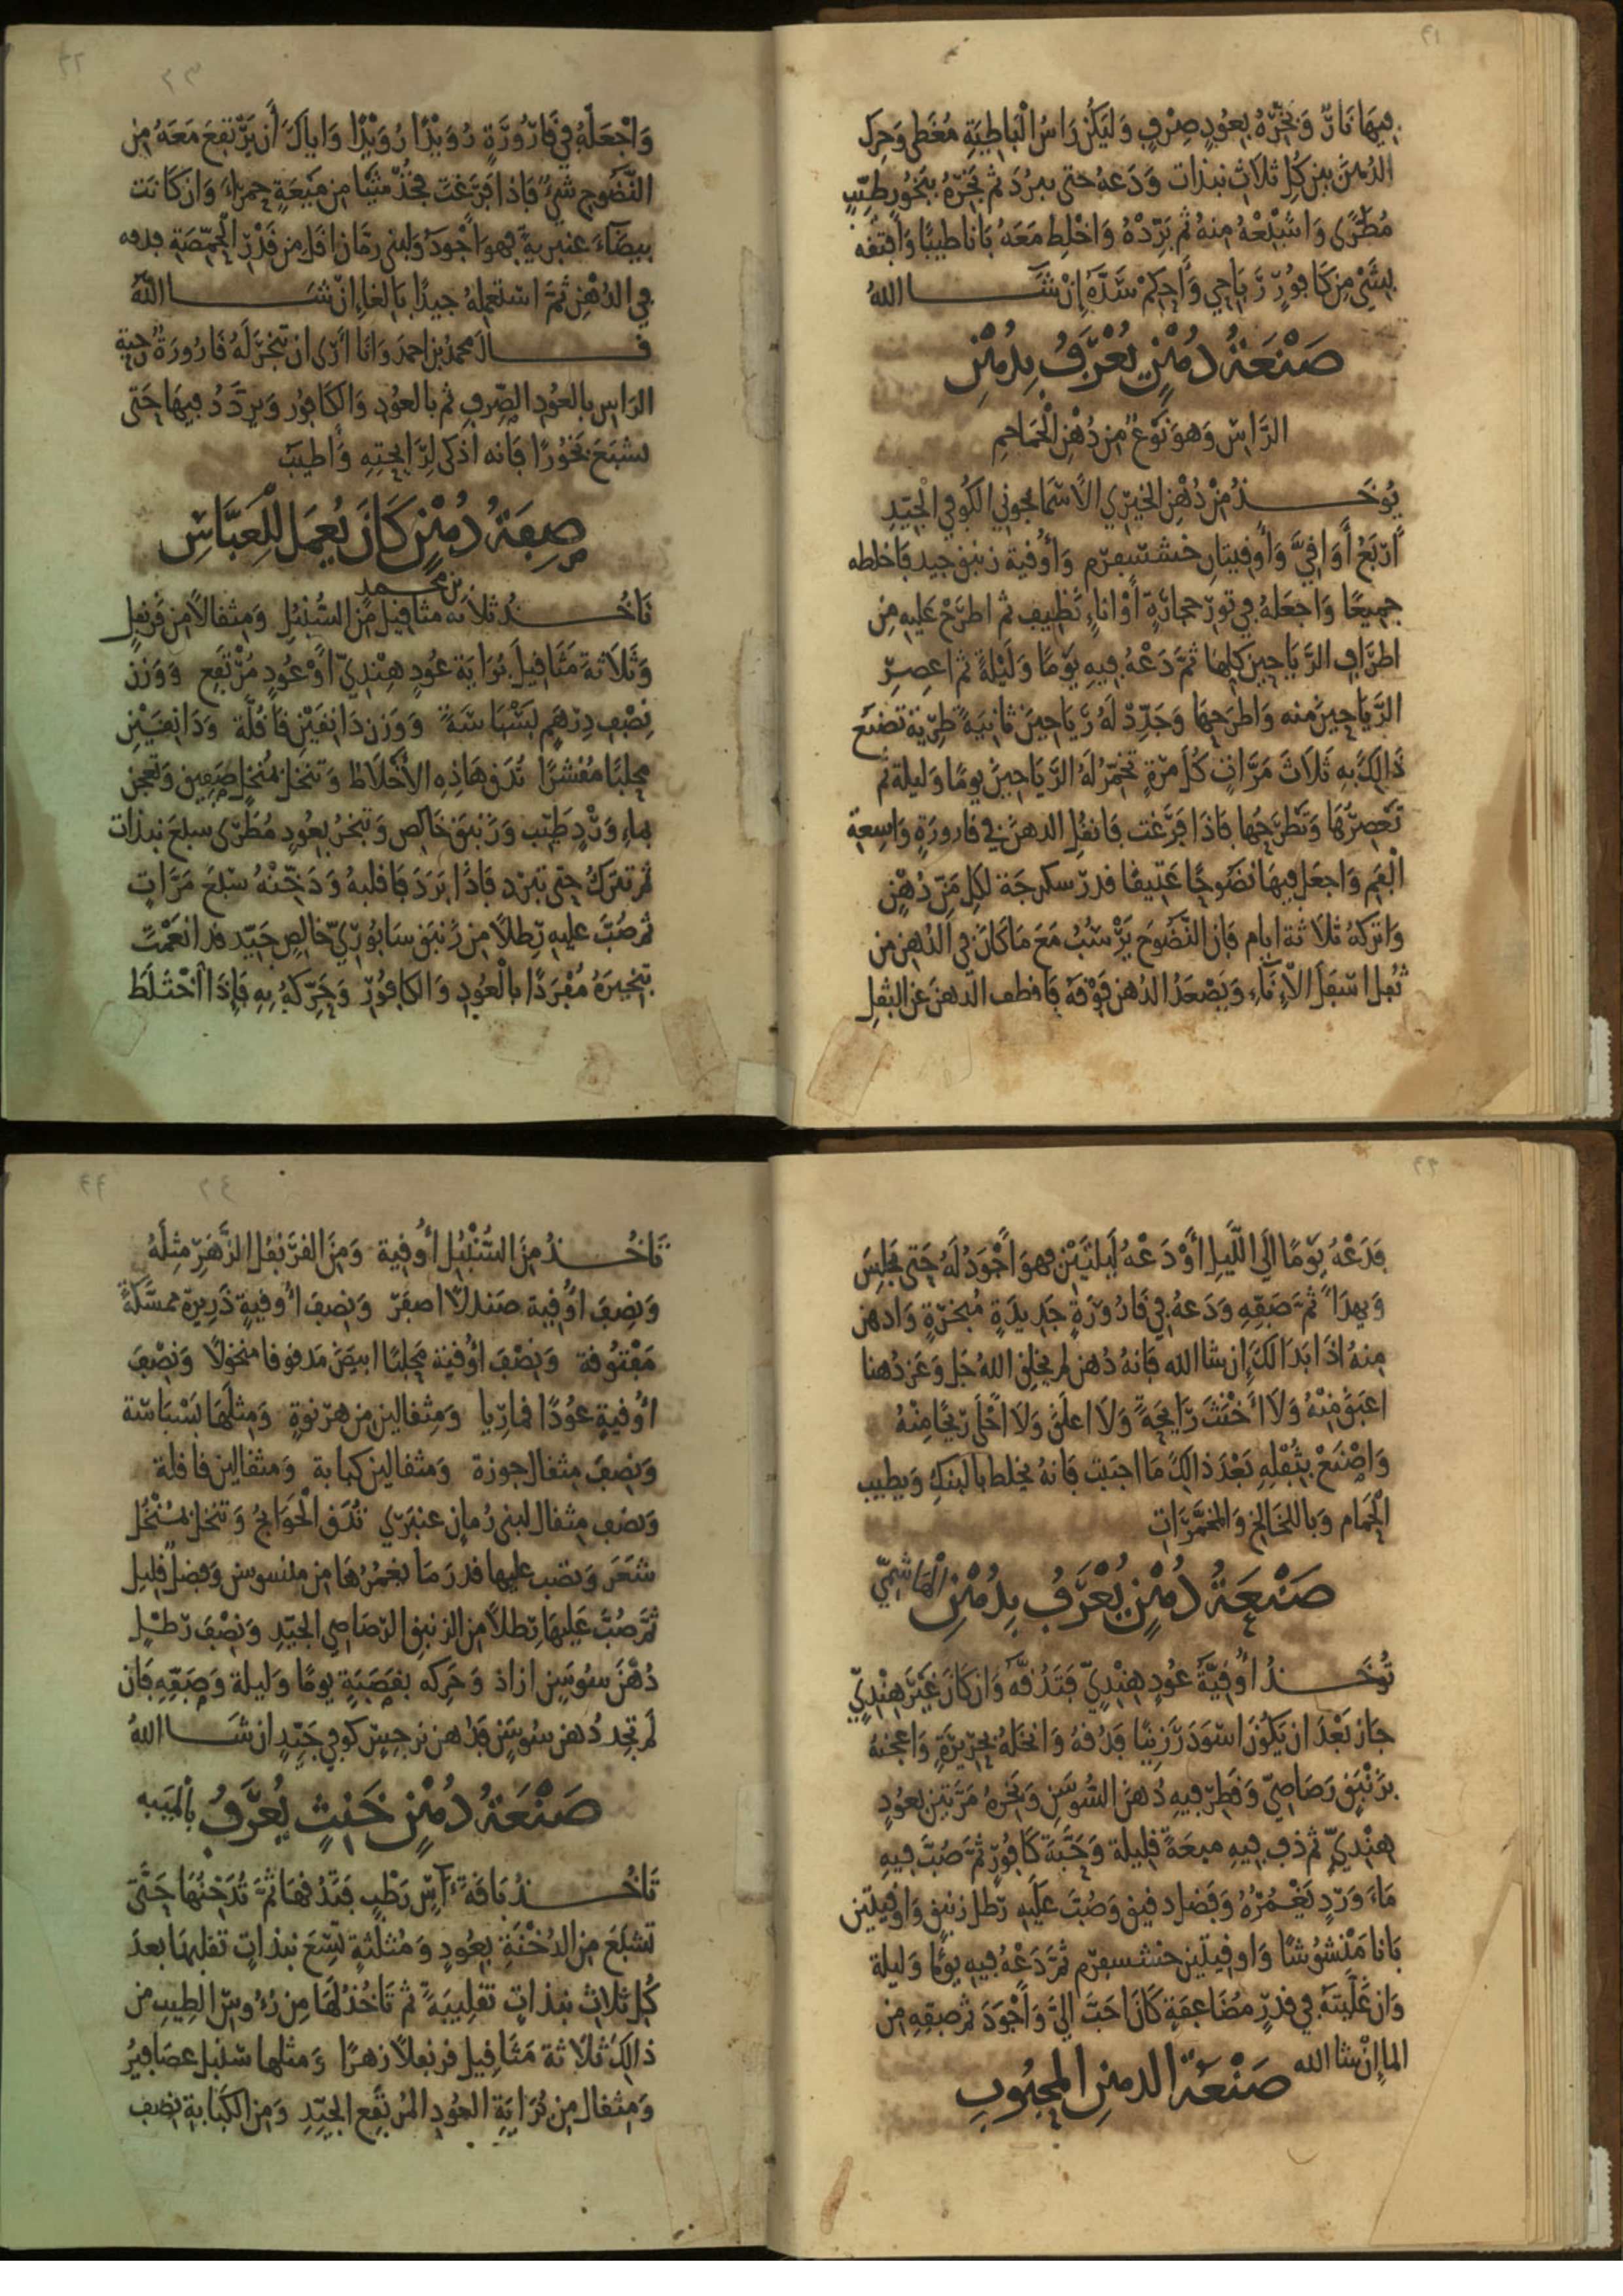 فيها نار وبخره بعود صرف وليكن راس الباطية مغطى وحرك
الدهن بين كل ثلاث نبذات ودعه حتى يبرد ثم بخره ببخور طيب
مطرى واشبعه منه ثم برده واخلط معه بانا طيبا وافتقه
بشئ من كافور رياحي واحكم سده إن شا الله
صنعة دهن يعرف بدهن
الراس وهو نوع من دهن الحماحم
يوخذ من دهن الخيري الاسمانجوني الكوفي الجيد
أربع أواقي وأوقيتان خشسبرم وأوقية زنبق جيد فاخلطه
جميعا واجعله في تور حجارة أو اناء نظيف ثم اطرح عليه من
اطراف الرياحين كلها ثم دعه فيه يوما وليلة ثم اعصر
الرياحين منه واطرحها وجدد له رياحين ثانية طرية تصنع
ذالك به ثلاث مرات كل مرة تخمر له الرياحين يوما وليلة ثم
تعصرها وتطرحها فاذا فرغت فانقل الدهن في قارورة واسعة
الفم واجعل فيها نضوحا عتيقا قدر سكرجة لكل من دهن
واتركه ثلاثة ايام فان النضوح يرسب مع ما كان في الدهن من
ثفل اسفل الاناء ويصعد الدهن فوقه فاقطف الدهن عن الثفل
واجعله في قارورة رويدا رويدا واياك أن يرتفع معه من
النضوح شئ فاذا فرغت فخذ شيا من ميعة حمراء وان كانت
بيضاء عنبرية فهو اجود ولبنى رمان اقل من قدر الحمصة فدفه
في الدهن ثم استعمله جيدا بالغا إن شا الله
قال محمد بن احمد وانا أرى ان تبخر له قارورة رحبة
الراس بالعود الصرف ثم بالعود والكافور ويردد فيها حتى
يشبع بخورا فانه اذكى لرائحته وأطيب
صفة دهن كان يعمل للعباس
بن محمد
تاخذ ثلاثة مثاقيل من السنبل ومثقالا من قرنفل
وثلاثة مثاقيل براية عود هندي أو عود مرتفع ووزن
نصف درهم بسباسة ووزن دانقين قاقلة ودانقين
محلبا مقشرا تدق هاذه الأخلاط وتنخل بمنخل صفيق وتعجن
بماء ورد طيب وزنبق خالص وتبخر بعود مطرى سبع نبذات
ثم تترك حتى تبرد فاذا برد فاقلبه ودخنه سبع مرات
ثم صب عليه رطلا من زنبق سابوري خالص جيد قد انعمت
تبخيره مفردا بالعود والكافور وحركه به فاذا اختلط
فدعه يوما الى الليل أو دعه ليلتين فهو أجود له حتى يجلس
ويهدا ثم صفه ودعه في قارورة جديدة مبخرة وادهن
منه اذا بدا لك إن شا الله فانه دهن لم يخلق الله جل وعز دهنا
اعبق منه ولا أخنث رايحة ولا اعلق ولا احلى ريحا منه
واصنع بثفله بعد ذالك ما احببت فانه يخلط بالبنك ويطيب
الحمام وباللخالخ والمخمرات
صنعة دهن يعرف بدهن الهاشمي
توخذ أوقية عود هندي فتدقه وان كان غير هندي
جاز بعد ان يكون اسود رزينا فدقه وانخله بحريرة واعجنه
بزنبق رصاصي وقطر فيه دهن السوسن وبخره مرتين بعود
هندي ثم ذف فيه ميعة قليلة وحبة كافور ثم صب فيه
ماء ورد يغمره وفضل دقيق وصب عليه رطل زنبق واوقيتين
بانا منشوشا واوقيتين خشسبرم ثم دعه فيه يوما وليلة
وان غليته في قدر مضاعفة كان احب الي وأجود ثم صفه من
الما إن شا الله صنعة الدهن المحبوب
تاخذ من السنبل أوقية ومن القرنفل الزهر مثله
ونصف أوقية صندلا اصفر ونصف أوقية ذريرة ممسكة
مفتوقة ونصف أوقية محلبا ابيض مدقوقا منخولا ونصف
أوقية عودا قماريا ومثقالين من هرنوة ومثلها بسباسة
ونصف مثقال جوزة ومثقالين كبابة ومثقالين قاقلة
ونصف مثقال لبنى رمان عنبري تدق الحوايج وتنخل بمنخل
شعر وتصب عليها قدر ما يغمرها من ملنسوس وفضل قليل
ثم صب عليها رطلا من الزنبق الرصاصي الجيد ونصف رطل
دهن سوسن ازاذ وحركه بقصبة يوما وليلة وصفه فان
لم تجد دهن سوسن فدهن نرجس كوفي جيد ان شا الله
صنعة دهن خنث يعرف بالميبه
تاخذ باقة آس رطب فتدقها ثم تدخنها حتى
تشبع من الدخنة بعود ومثلثة تسع نبذات تقلبها بعد
كل ثلاث نبذات تقليبة ثم تاخذ لها من رؤوس الطيب من
ذالك ثلاثة مثاقيل قرنفلا زهرا ومثلها سنبل عصافير
ومثقال من براية العود المرتفع الجيد ومن الكبابة نصف